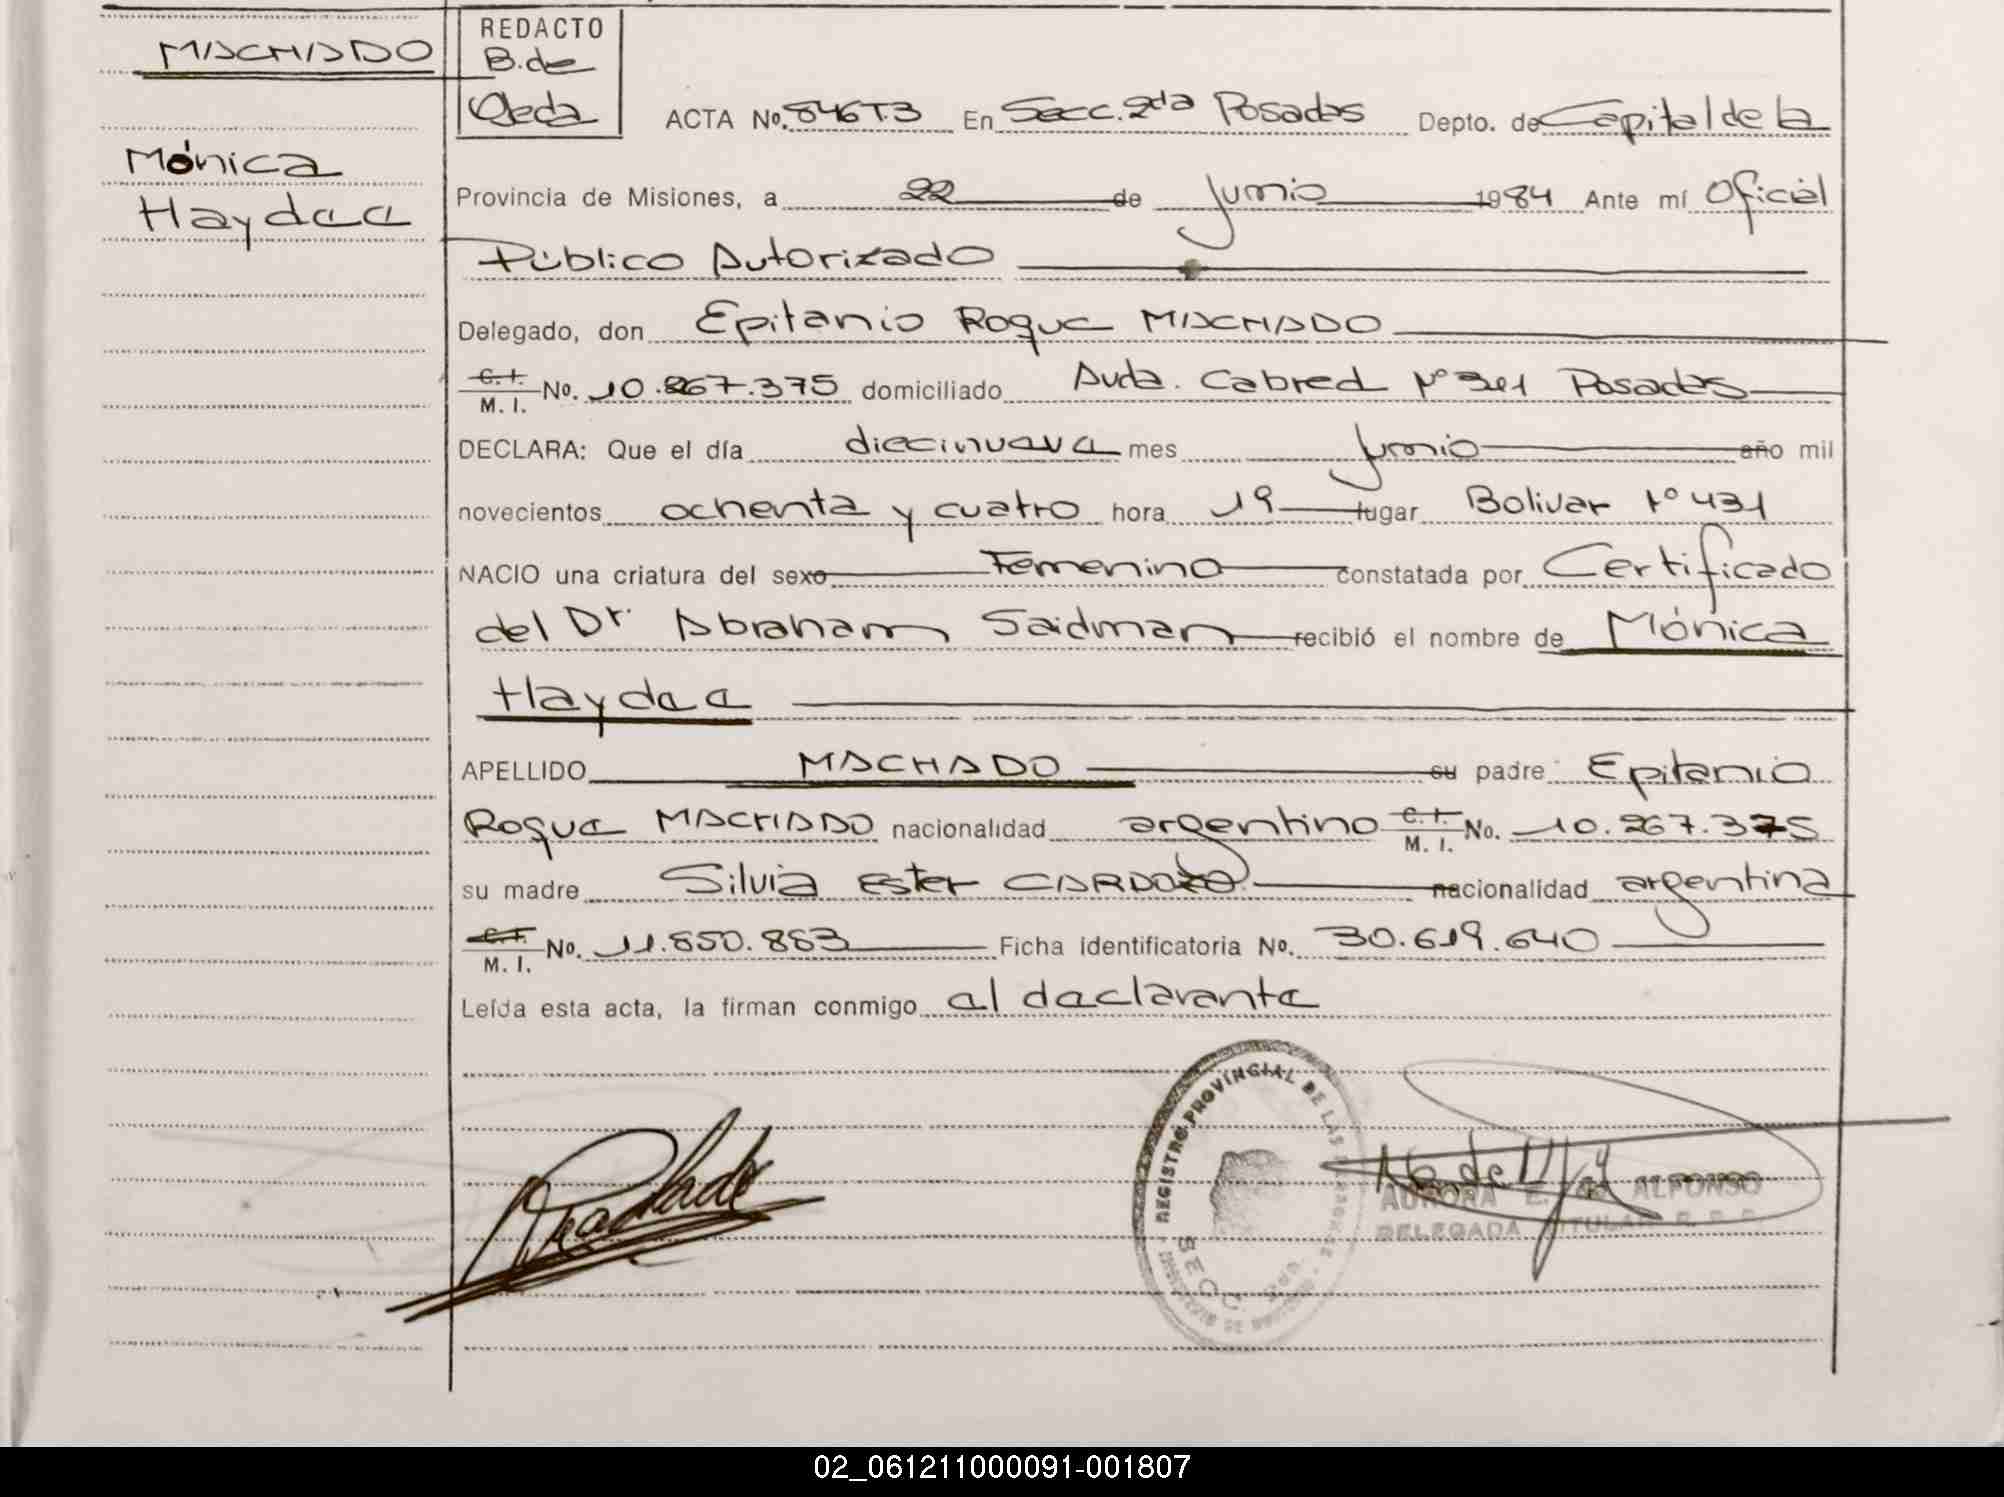 MACHADO
Mónica
Haydee
REDACTO
B. de
Ojeda
ACTA No. 846T3 En Secc. 2da Posadas Depto. de Capital de la
Provincia de Misiones, a 22 de Junio 1984 Ante mí Oficial
Público Autorizado
Delegado, don Epitanio Roque MACHADO
C. I.
M. I. No. 10.267.375 domiciliado Avda. Cabred Nº 341 Posadas
DECLARA: Que el día diecinueve mes Junio año mil
novecientos ochenta y cuatro hora 19 lugar Bolivar Nº 431
NACIO una criatura del sexo Femenino constatada por Certificado
del Dr. Abraham Saidman recibió el nombre de Mónica
Haydee
APELLIDO MACHADO su padre Epitanio
Roque MACHADO nacionalidad argentino C. I.
M. I. No. 10.267.375
su madre Silvia Ester CARDOZO nacionalidad argentina
C. I.
M. I. No. 11.850.883 Ficha identificatoria No. 30.619.640
Leída esta acta, la firman conmigo el declarante
REGISTRO PROVINCIAL DE LAS
SECC.
AURORA E. ALFONSO
DELEGADA TITULAR R. P. P.
02_061211000091-001807